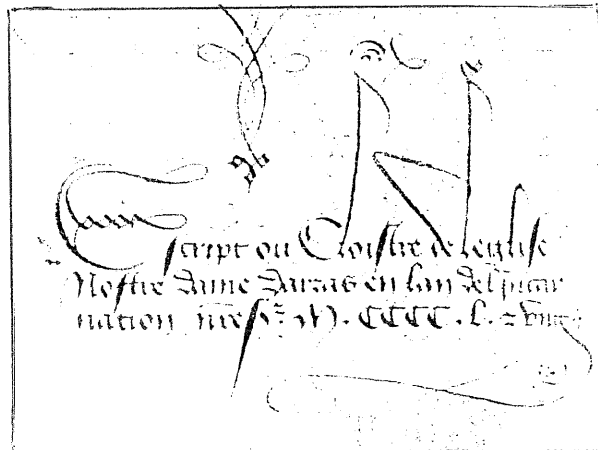 Escript ou Cloistre de leglise
Nostre dame darras en lan del incar
nation nre sr M. CCCC. L. z